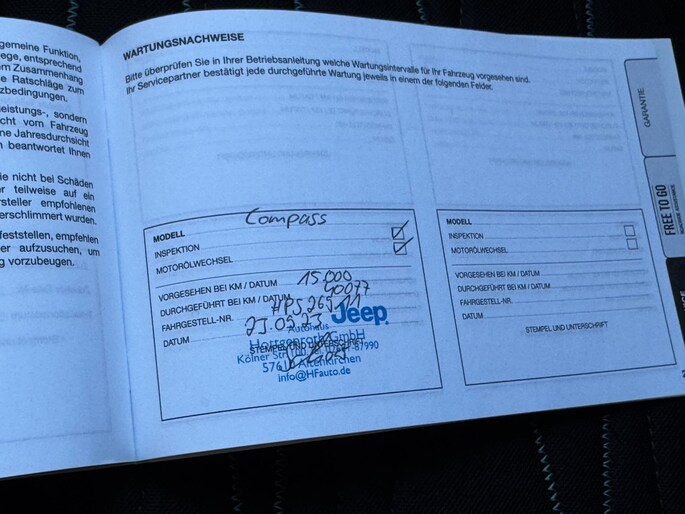 gemeine Funktion,
ege, entsprechend
m Zusammenhang
e Ratschläge zum
zbedingungen.
eistungs-, sondern
cht vom Fahrzeug
ne Jahresdurchsicht
n beantwortet Ihnen
ie nicht bei Schäden
r teilweise auf ein
rsteller empfohlenen
erschlimmert wurden.
feststellen, empfehlen
er aufzusuchen, um
g vorzubeugen.
WARTUNGSNACHWEISE
Bitte überprüfen Sie in Ihrer Betriebsanleitung welche Wartungsintervalle für Ihr Fahrzeug vorgesehen sind.
Ihr Servicepartner bestätigt jede durchgeführte Wartung jeweils in einem der folgenden Felder.
MODELL Compass
INSPEKTION
MOTORÖLWECHSEL
VORGESEHEN BEI KM / DATUM 15.000
DURCHGEFÜHRT BEI KM / DATUM
FAHRGESTELL-NR.
DATUM 23.05.23
Jeep
Autohaus
GmbH
STEMPEL UND UNTERSCHRIFT
Kölner
Altenkirchen
info@HFauto.de
MODELL
INSPEKTION
MOTORÖLWECHSEL
VORGESEHEN BEI KM / DATUM
DURCHGEFÜHRT BEI KM / DATUM
FAHRGESTELL-NR.
DATUM
STEMPEL UND UNTERSCHRIFT
GARANTIE
FREE TO GO